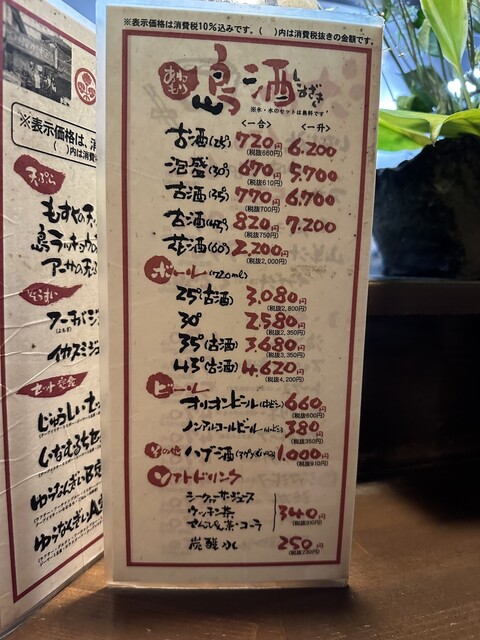 ※表示価格は、消
(　)内は消費税
天ぷら
もずくの天
島ラッキョウの
アーサの天ぷ
ぞうすい
フーチバージ
(よもぎ)
イカスミジュ
セット定食
じゅうしいセッ
いなむるちセ
ゆうなんぎいB定
ゆうなんぎいA定
※表示価格は消費税10％込みです。(　)内は消費税抜きの金額です。
あわもり
島酒
しまざき
※氷・水のセットは無料です
<一合> <一升>
古酒(25°) 720円 6.200
(税抜660円)
泡盛(30°) 670円 5.700
(税抜610円)
古酒(35°) 770円 6.700
(税抜700円)
古酒(43°) 820円 7.200
(税抜750円)
花酒(60°) 2,200円
(税抜2,000円)
ボトル(720ml)
25°古酒 3.080円
(税抜2,800円)
30° 2.580円
(税抜2,350円)
35°(古酒) 3.680円
(税抜3,350円)
43°(古酒) 4.620円
(税抜4,200円)
ビール
オリオンビール(中ビン) 660円
(税抜600円)
ノンアルコールビール 380円
(税抜350円)
その他 ハブ酒 1.000円
(税抜910円)
ソフトドリンク
シークヮーサージュース
ウッチン茶
さんぴん茶・コーラ 340円
(税抜310円)
炭酸水 250円
(税抜230円)